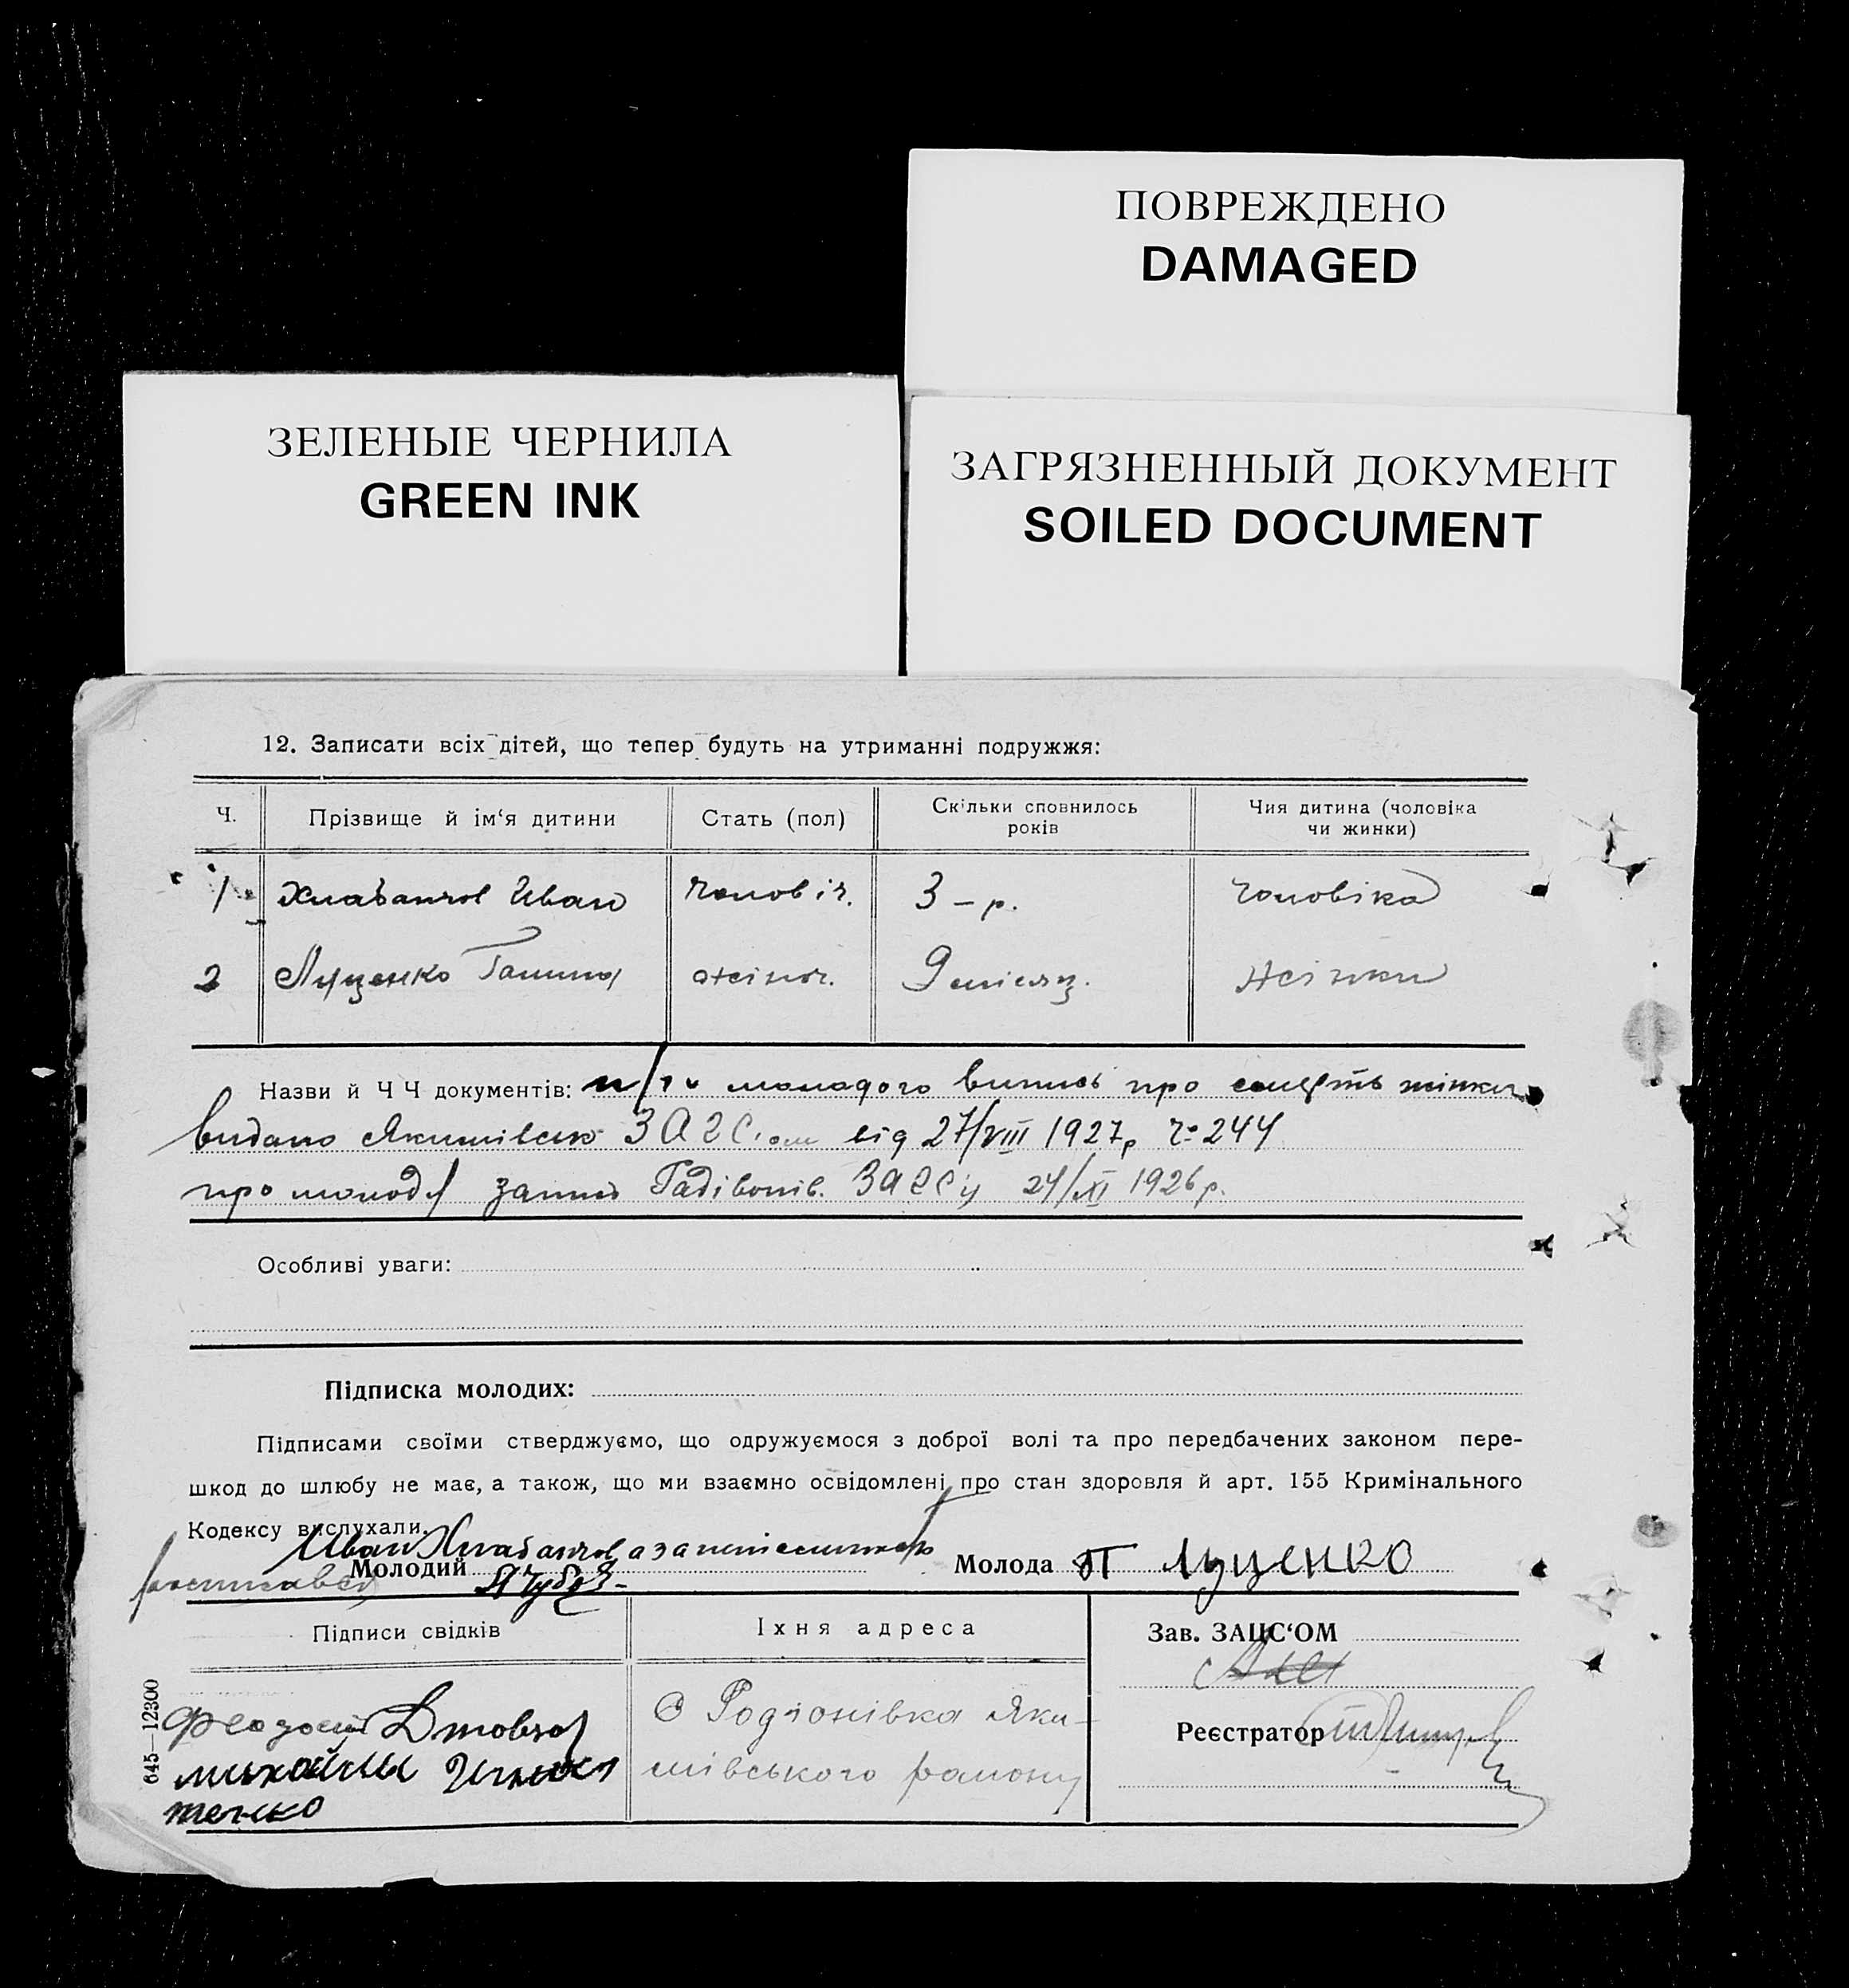 ПОВРЕЖДЕНО
DAMAGED
ЗЕЛЕНЫЕ ЧЕРНИЛА
GREEN INK
ЗАГРЯЗНЕННЫЙ ДОКУМЕНТ
SOILED DOCUMENT
12. Записати всіх дітей, що тепер будуть на утриманні подружжя:
Ч. Прізвище й ім‘я дитини Стать (пол) Скільки сповнилось років Чия дитина (чоловіка чи жинки)
1 Иван чоловіч. 3 – р. чоловіка
2 Луценко Ганна жіноч. 9 місяц. жінки
Назви й Ч Ч документів: молодого випись про смерть жінки
видано Якимівськ ЗАГС від 27/VIII 1927р ч. 244
про молоду запис ЗАГСу 24/XI 1926 р.
Особливі уваги:
Підписка молодих:
Підписами своїми стверджуємо, що одружуємося з доброї волі та про передбачених законом пере-
шкод до шлюбу не має, а також, що ми взаємно освідомлені про стан здоровля й арт. 155 Кримінального
Кодексу вислухали.
Иван
Молодий Молода П Луценко
росписався
Підписи свідків Їхня адреса Зав. ЗАЦС‘ОМ
Феодосий С Родіонівка Яки-
Реєстратор
мівського району
645—12300